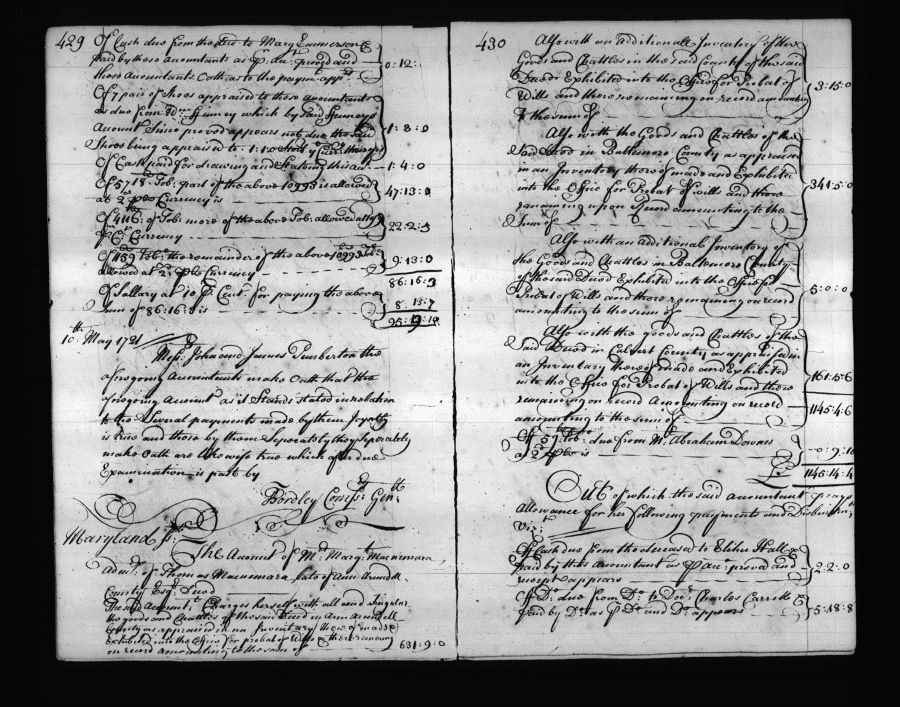 429
Of Cash due from the Dec'd to Mary Emmerson &
paid by these accountants as p acc.t proved and
those Accountants Oath as to the paym.t app.rs 0:12:
Of 7 pair of Shoes appraised to these accountants
as due from W.m which by said
Account Since proved appears not due the said
Shoes being appraised to 1:8:0 1:8:0
Of Cash paid for drawing and Stateing this acc.t 1:4:0
Of 5718 Tob: part of the above 10993 is allowed
at 2 p Currency is 47:13:0
Of 4116: of Tob: more of the above Tob: allowed att
p C.t Currency 22:2:5
Of 1159 Tob: the remainder of the above 10993
allowed at 2.d p Currency 9:13:0
86:16:3
Of Sallary at 10 p Cent for paying the above
Sum of 86:16:3 is 8:13:7
95:9:10
10.th May 1721
Mess.rs John and James Pemberton the
aforegoing Accountants make Oath that the
aforegoing Account as it Stands stated in relation
to the Several payments made by them Joyntly
is true and those by them Seperately they Seperately
make Oath are likewise true which after due
Examination is past by
Bordley Comiss.ry Gen.ll
Maryland ss.
The Account of M.rs Marg.t Macnemara
Adm.x of Thomas Macnemara late of Ann Arundell
County Esq.r Dec'd
The said Account.t Charges herself with all and Singular
the goods and Chattles of the said Dec'd in Ann Arundell
County as appraised in an Inventary thereof made &
Exhibited into the Office for probat of Wills & there remaining
on record amounting to the sum of 631:9:0
430
Also with an additionall Inventory of the
Goods and Chattles in the said County of the said
Dec'd Exhibited into the Office for Probat of
Wills and there remaining on record amounting
to the sum of 3:15:0
Also with the Goods and Chattles of the
Said Dec'd in Baltemore County as appraised
in an Inventary thereof made and Exhibited
into the Office for Probat of wills and there
remaining upon Record amounting to the
Sum of 341:5:0
Also with an Additional Inventory of
the Goods and Chattles in Baltemore County
of the said Dec'd Exhibited into the Office for
Probat of Wills and there remaining on record
amounting to the sum of 5:0:0
Also with the goods and Chattles of the
Said Dec'd in Calvert County as appraised in
an Inventary thereof made and Exhibited
into the Office for Probat of Wills and there
remaining on record Amounting on record
amounting to the sum of 161:5:6
1145:4:6
Of 57 Tob: due from M.r Abraham Downes
at 2.d p is 0:9:10
1145:14:4
Out of which the said accountant prays
allowance for her following payments and Disbursem.ts
Viz.t
Of Cash due from the deceased to Elihu Hall &
paid by this Accountant as p acc.t proved and
receipt appears 2:2:0
Of D.o due from D.o to Doct.r Charles Carroll &
paid by D.o as p D.o and D.o appears 5:18:8